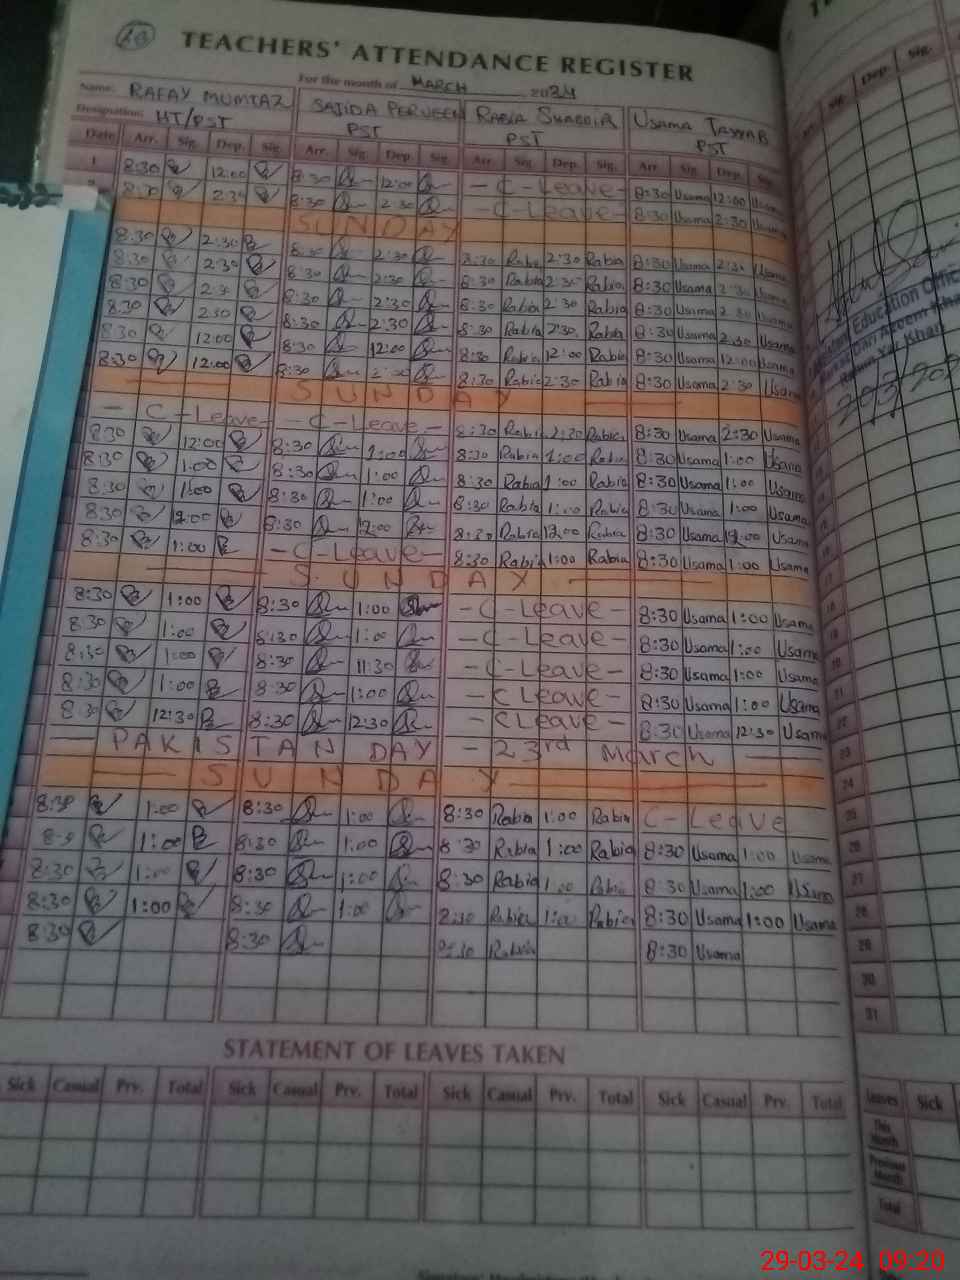 20
TEACHERS' ATTENDANCE REGISTER
For the month of MARCH 2024
Name: RAFAY MUMTAZ SAJIDA PERVEEN RABIA SHABBIR USAMA TAYYAB
Designation: HT/PST PST PST PST
Date Arr. Sig. Dep. Sig. Arr. Sig. Dep. Sig. Arr. Sig. Dep. Sig. Arr. Sig. Dep. Sig.
1 8:30 12:00 8:30 12:00 - C-Leave - 8:30 Usama 12:00 Usama
8:30 2:30 8:30 2:30 - C-Leave - 8:30 Usama 2:30 Usama
SUNDAY
8:30 2:30 8:30 2:30 8:30 Rabia 2:30 Rabia 8:30 Usama 2:30 Usama
8:30 2:30 8:30 2:30 8:30 Rabia 2:30 Rabia 8:30 Usama 2:30 Usama
8:30 2:30 8:30 2:30 8:30 Rabia 2:30 Rabia 8:30 Usama 2:30 Usama
8:30 2:30 8:30 2:30 8:30 Rabia 2:30 Rabia 8:30 Usama 2:30 Usama
8:30 12:00 8:30 12:00 8:30 Rabia 12:00 Rabia 8:30 Usama 12:00 Usama
8:30 12:00 8:30 2:30 8:30 Rabia 2:30 Rabia 8:30 Usama 2:30 Usama
SUNDAY
- C-Leave - - C-Leave - 8:30 Rabia 2:30 Rabia 8:30 Usama 2:30 Usama
8:30 12:00 8:30 1:00 8:30 Rabia 1:00 Rabia 8:30 Usama 1:00 Usama
8:30 1:00 8:30 1:00 8:30 Rabia 1:00 Rabia 8:30 Usama 1:00 Usama
8:30 1:00 8:30 1:00 8:30 Rabia 1:00 Rabia 8:30 Usama 1:00 Usama
8:30 12:00 8:30 12:00 8:30 Rabia 12:00 Rabia 8:30 Usama 12:00 Usama
8:30 1:00 - C-Leave - 8:30 Rabia 1:00 Rabia 8:30 Usama 1:00 Usama
SUNDAY
8:30 1:00 8:30 1:00 - C-Leave - 8:30 Usama 1:00 Usama
8:30 1:00 8:30 1:00 - C-Leave - 8:30 Usama 1:00 Usama
8:30 1:00 8:30 11:30 - C-Leave - 8:30 Usama 1:00 Usama
8:30 1:00 8:30 1:00 - C Leave - 8:30 Usama 1:00 Usama
8:30 12:30 8:30 12:30 - C Leave - 8:30 Usama 12:30 Usama
- PAKISTAN DAY - 23rd March -
SUNDAY
8:30 1:00 8:30 1:00 8:30 Rabia 1:00 Rabia C-Leave
8:30 1:00 8:30 1:00 8:30 Rabia 1:00 Rabia 8:30 Usama 1:00 Usama
8:30 1:00 8:30 1:00 8:30 Rabia 1:00 Rabia 8:30 Usama 1:00 Usama
8:30 1:00 8:30 1:00 8:30 Rabia 1:00 Rabia 8:30 Usama 1:00 Usama
8:30 8:30 8:30 Rabia 8:30 Usama
STATEMENT OF LEAVES TAKEN
Sick Casual Prv. Total Sick Casual Prv. Total Sick Casual Prv. Total Sick Casual Prv. Total
Sig. Dep. Sig.
Education Office
Rahim Yar Khan
18
19
20
21
22
23
24
25
26
27
28
29
30
31
Leaves Sick
This Month
Previous Month
Total
29-03-24 09:20